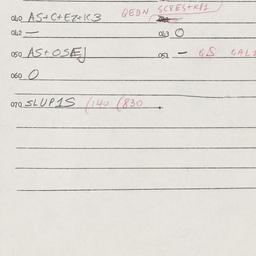 060 AS+C+EZ+K3 QEDN SCRES+KP1
062 — 063 O
050 AS+OSEJ 051 — GS GAL1
060 O
070 SLUP1S (140 (830